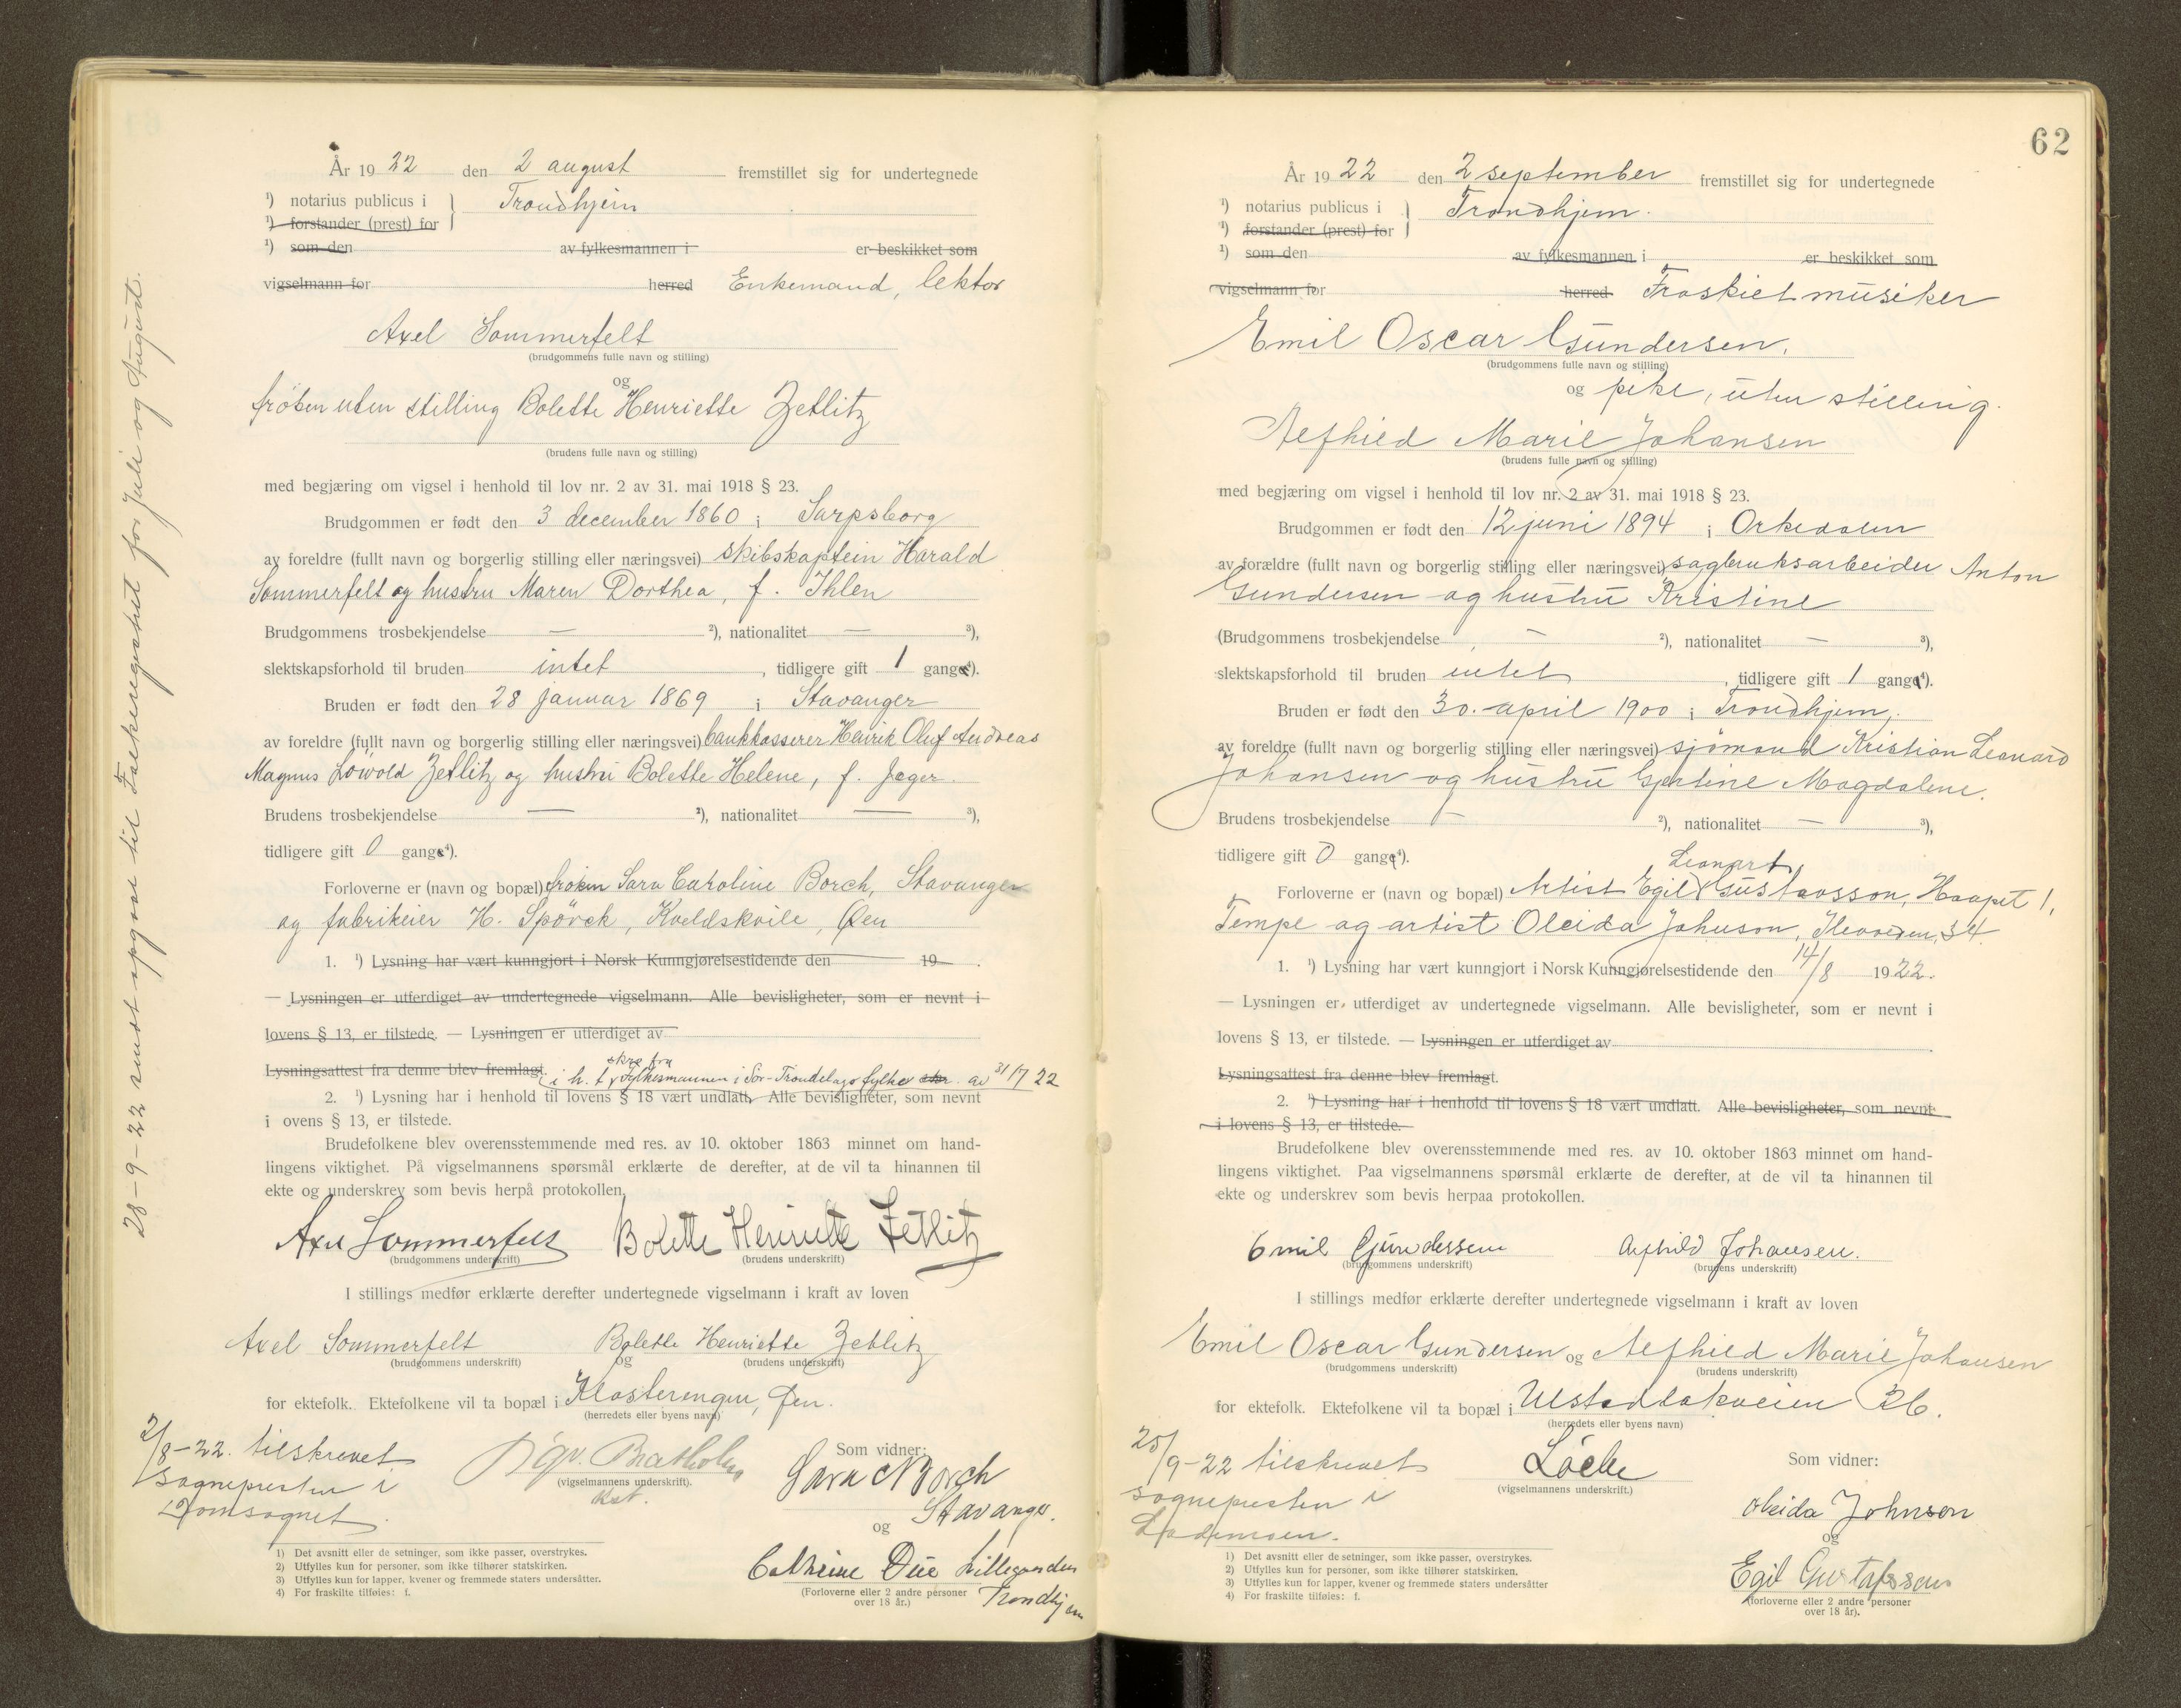 28-9-22 sendt opgave til Folkeregistret for Juli og August.
År 1922 den 2 august fremstillet sig for undertegnede
¹) notarius publicus i } Trondhjem
¹) forstander (prest) for
¹) som den av fylkesmannen i er beskikket som
vigselmann for herred Enkemand, lektor
Axel Sommerfelt
(brudgommens fulle navn og stilling)
og
frøken uten stilling Bolette Henriette Zetlitz
(brudens fulle navn og stilling)
med begjæring om vigsel i henhold til lov nr. 2 av 31. mai 1918 § 23.
Brudgommen er født den 3 december 1860 i Sarpsborg
av foreldre (fullt navn og borgerlig stilling eller næringsvei) skibskaptein Harald
Sommerfelt og hustru Maren Dorthea, f. Ihlen
Brudgommens trosbekjendelse — ²), nationalitet — ³),
slektskapsforhold til bruden intet, tidligere gift 1 gange⁴).
Bruden er født den 28 januar 1869 i Stavanger
av foreldre (fullt navn og borgerlig stilling eller næringsvei) bankkasserer Henrik Oluf Andreas
Magnus Løwold Zetlitz og hustru Bolette Helene, f. Jæger.
Brudens trosbekjendelse — ²), nationalitet — ³),
tidligere gift 0 gange⁴).
Forloverne er (navn og bopæl) frøken Sara Caroline Borch, Stavanger
og fabrikeier H. Spørck, Kveldskvile, Øen
1. ¹) Lysning har vært kunngjort i Norsk Kunngjørelsestidende den 19 .
— Lysningen er utferdiget av undertegnede vigselmann. Alle bevisligheter, som er nevnt i
lovens § 13, er tilstede. — Lysningen er utferdiget av
skr. fra
Lysningsattest fra denne blev fremlagt. i h. t. Fylkesmannen i Sør-Trøndelags fylke av 31/7 22
2. ¹) Lysning har i henhold til lovens § 18 vært undlatt. Alle bevisligheter, som nevnt
i ovens § 13, er tilstede.
Brudefolkene blev overensstemmende med res. av 10. oktober 1863 minnet om hand-
lingens viktighet. På vigselmannens spørsmål erklærte de derefter, at de vil ta hinannen til
ekte og underskrev som bevis herpå protokollen.
Axel Sommerfelt Bolette Henriette Zetlitz
(brudgommens underskrift) (brudens underskrift)
I stillings medfør erklærte derefter undertegnede vigselmann i kraft av loven
Axel Sommerfelt og Bolette Henriette Zetlitz
(brudgommens underskrift) (brudens underskrift)
for ektefolk. Ektefolkene vil ta bopæl i Klosterengen, Øen.
(herredets eller byens navn)
2/8-22. tilskrevet
sognepresten i
Domsognet.
Sigv. Bratholm
(vigselmannens underskrift).
kst.
Som vidner:
Sara N Borch
Stavanger.
og
Cathrine Due Lillegaarden
Trondhjem
(Forloverne eller 2 andre personer
over 18 år.)
1) Det avsnitt eller de setninger, som ikke passer, overstrykes.
2) Utfylles kun for personer, som ikke tilhører statskirken.
3) Utfylles kun for lapper, kvener og fremmede staters undersåtter.
4) For fraskilte tilføies: f.
62
År 1922 den 2 september fremstillet sig for undertegnede
¹) notarius publicus i } Trondhjem.
¹) forstander (prest) for
¹) som den av fylkesmannen i er beskikket som
vigselmann for herred Fraskilt musiker
Emil Oscar Gundersen.
(brudgommens fulle navn og stilling)
og pike, uten stilling.
Alfhild Marie Johansen
(brudens fulle navn og stilling)
med begjæring om vigsel i henhold til lov nr. 2 av 31. mai 1918 § 23.
Brudgommen er født den 12 juni 1894 i Orkedalen
av forældre (fullt navn og borgerlig stilling eller næringsvei) sagbruksarbeider Anton
Gundersen og hustru Kristine
(Brudgommens trosbekjendelse — ²), nationalitet — ³),
slektskapsforhold til bruden intet, tidligere gift 1 gange⁴).
Bruden er født den 30. april 1900 i Trondhjem,
av foreldre (fullt navn og borgerlig stilling eller næringsvei) sjømand Kristian Leonard
Johansen og hustru Gjertine Magdalene.
Brudens trosbekjendelse — ²), nationalitet — ³),
tidligere gift 0 gange⁴).
Leonart
Forloverne er (navn og bopæl) Artist Egil Gustavsson, Haapet 1,
Tempe og artist Oleida Johnson, Ilevolden 34.
1. ¹) Lysning har vært kunngjort i Norsk Kunngjørelsestidende den 14/8 1922.
— Lysningen er utferdiget av undertegnede vigselmann. Alle bevisligheter, som er nevnt i
lovens § 13, er tilstede. — Lysningen er utferdiget av .
Lysningsattest fra denne blev fremlagt.
2. ¹) Lysning har i henhold til lovens § 18 vært undlatt. Alle bevisligheter, som nevnt
i lovens § 13, er tilstede.
Brudefolkene blev overensstemmende med res. av 10. oktober 1863 minnet om hand-
lingens viktighet. Paa vigselmannens spørsmål erklærte de derefter, at de vil ta hinannen til
ekte og underskrev som bevis herpaa protokollen.
Emil Gundersen Alfhild Johansen.
(brudgommens underskrift) (brudens underskrift)
I stillings medfør erklærte derefter undertegnede vigselmann i kraft av loven
Emil Oscar Gundersen og Alfhild Marie Johansen
(brudgommens underskrift) (brudens underskrift)
for ektefolk. Ektefolkene vil ta bopæl i Ulstadløkveien 26.
(herredets eller byens navn)
25/9-22 tilskrevet
sognepresten i
Lademoen.
Løcke
(vigselmannens underskrift.)
Som vidner:
Oleida Johnson
og
Egil Gustafsson
(forloverne eller 2 andre personer
over 18 år).
1) Det avsnitt eller de setninger, som ikke passer, overstrykes.
2) Utfylles kun for personer, som ikke tilhører statskirken.
3) Utfylles kun for lapper, kvener og fremmede staters undersåtter
4) For fraskilte tilføies: f.